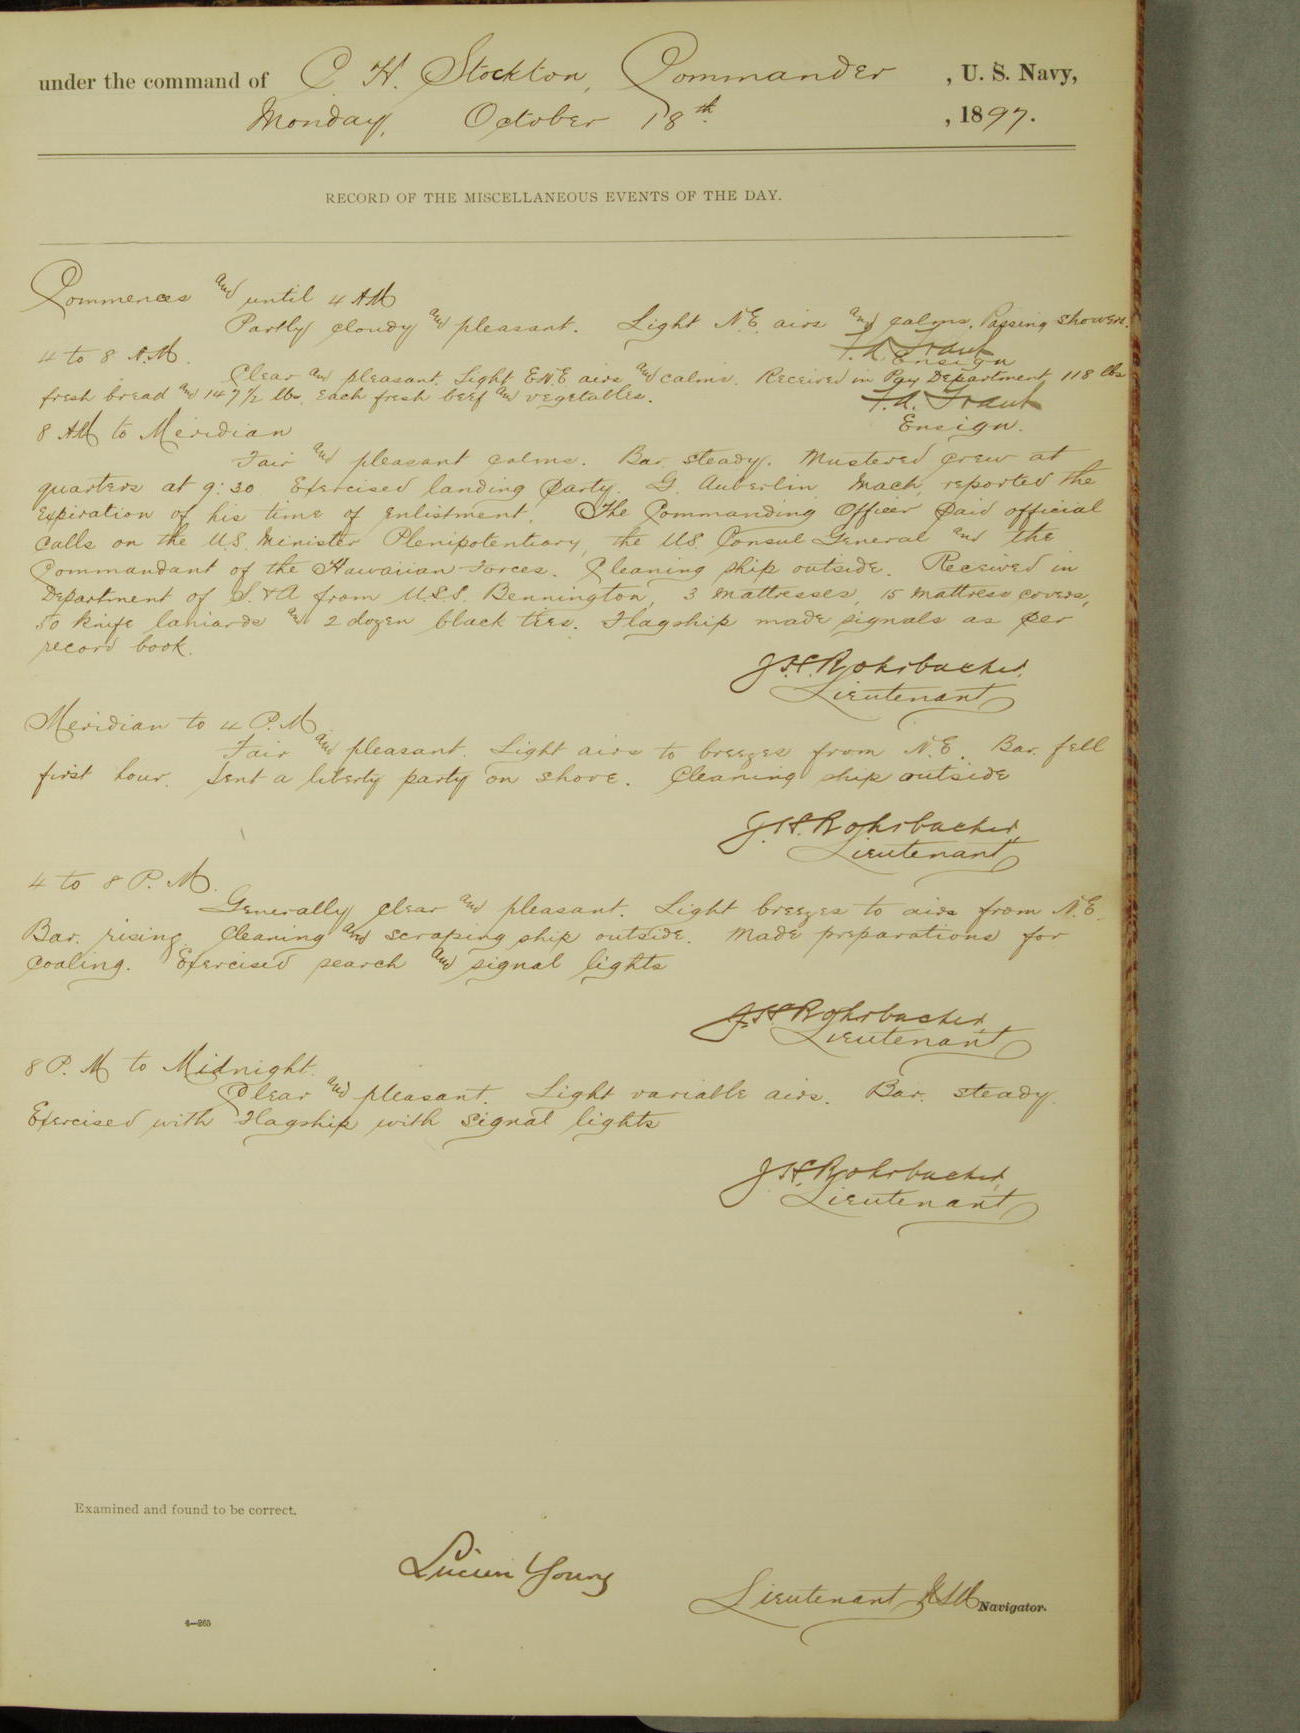 under the command of C. H. Stockton, Commander, U. S. Navy,
Monday, October 18th, 1897.
RECORD OF THE MISCELLANEOUS EVENTS OF THE DAY.
Commences and until 4 AM
Partly cloudy and pleasant. Light N.E. airs and calms. Passing showers.
F. A. Traut
Ensign
4 to 8 A.M.
Clear and pleasant. Light E.N.E airs and calms. Received in Pay Department 118 lbs
fresh bread and 147 1/2 lbs. each fresh beef and vegetables.
F. A. Traut
Ensign.
8 AM to Meridian
Fair and pleasant calms. Bar. steady. Mustered crew at
quarters at 9:30 Exercised landing party. G. Auberlin Mach, reported the
expiration of his time of enlistment. The Commanding Officer paid official
calls on the U.S. Minister Plenipotentiary, the U.S. Consul General and the
Commandant of the Hawaiian Forces. Cleaning ship outside. Received in
Department of S. & A from U.S.S. Bennington, 3 mattresses, 15 mattress covers,
50 knife laniards and 2 dozen black ties. Flagship made signals as per
record book.
J.H. Rohrbacher,
Lieutenant
Meridian to 4 P.M
Fair and pleasant. Light airs to breezes from N.E. Bar. fell
first hour. Sent a liberty party on shore. Cleaning ship outside
J.H. Rohrbacher,
Lieutenant
4 to 8 P.M.
Generally clear and pleasant. Light breezes to airs from N.E.
Bar. rising. Cleaning and scraping ship outside. Made preparations for
coaling. Exercised search and signal lights
J.H. Rohrbacher,
Lieutenant
8 P.M to Midnight.
Clear and pleasant. Light variable airs. Bar. steady.
Exercised with Flagship with signal lights
J.H. Rohrbacher,
Lieutenant
Examined and found to be correct.
Lucien Young
Lieutenant USN Navigator.
4—265